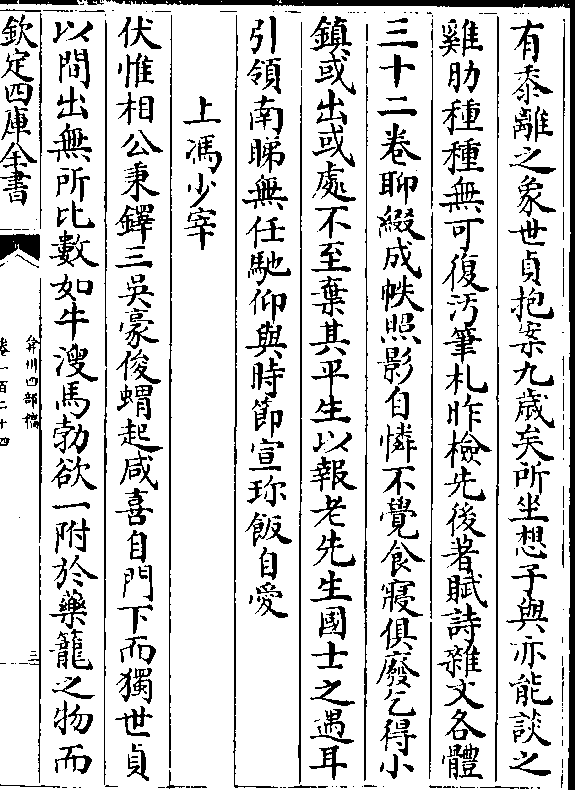 有黍離之象世貞抱案九歲矣所坐想子與亦能談之
雞肋種種無可復汚筆札昨檢先後著賦詩雜文各體
三十二卷聊綴成帙照影自憐不覺食寢俱廢乞得小
鎮或出或處不至棄其平生以報老先生國士之遇耳
引領南睇無任馳仰與時節宣珍飯自愛
上馮少宰
伏惟相公秉鐸三吳豪俊蝟起咸喜自門下而獨世貞
以間出無所比數如牛溲馬勃欲一附於藥籠之物而
欽定四庫全書
弇州四部稿
卷一百二十四
三